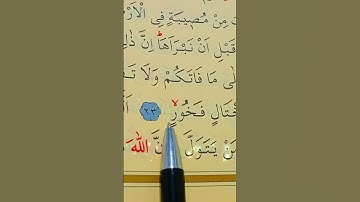 مِنْ مُص۪يبَةٍ فِي الْاَرْ
قَبْلِ اَنْ نَبْرَاَهَا اِنَّ ذٰلِ
لٰى مَا فَاتَكُمْ وَلَا تَفْ
خْتَالٍ فَخُورٍۙ ٢٣ اَلَّ
مَنْ يَتَوَلَّ نَّ اللّٰهَ